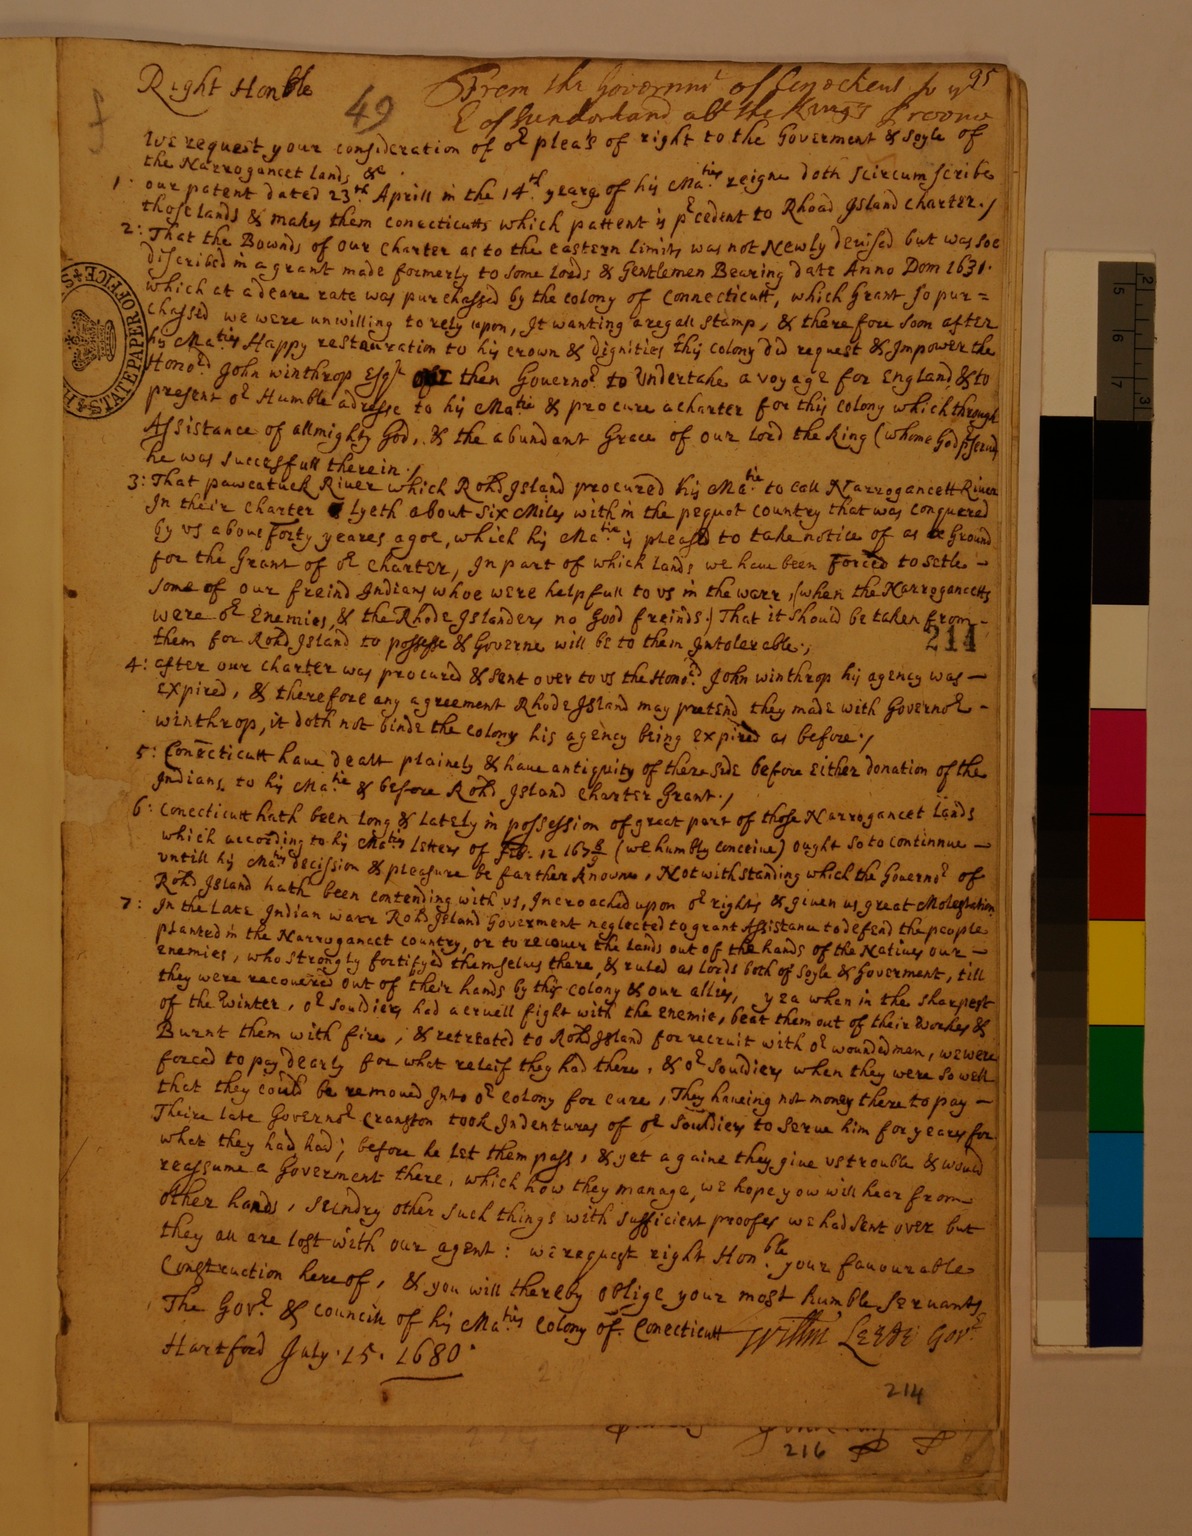 Right Honble
49
From the Governmt of Conecticut to ye 95
E of Sunderland abt the King's Province
We request your consideration of or pleas of right to the Goverment & soyle of
the Narrogancet lands &c
1. our patent dated 23th Aprill in the 14th yeare of his Maties reigne doth scircumscribe
those lands & makes them conecticutts which pattent is pcedent to Rhoad Island charter./
2: That the Bownds of our charter as to the eastern limits was not Newly devised but was soe
discribed in a grant made formerly to some Lords & Gentlemen Bearing date Anno Dom 1631.
which at a deare rate was purchassed by the colony of Connecticutt, which Grant so pur=
chassed we were unwilling to rely upon, It wanting a regall stamp, & therefore soon after
his Maties Happy restauration to his crown & dignities this colony did request & Impower the
Honord John winthrop Esqr then Governor to undertake a voyage for England & to
present or Humble adresse to his Matie & procure a charter for this colony which through
Assistance of allmighty God, & the abundant Grace of our Lord the King (whome God pserve)
he was successfull therein./
3: That pawcatuck River which Rohd Island procured his Matie to call Narrogancett River
In their charter Lyeth about six Miles within the pequot country that was conquered
by vs above forty yeares agoe, which his Matie is pleased to take notice of as Ground
for the Grant of or charter, In part of which lands we have been forced to setle -
some of our freind Indians whoe were helpfull to vs in the warr, (when the Narrogancetts
were or Enemies, & the Rhode Islanders no good freinds) That it should be taken from -
them for Rohd Island to possesse & Governe will be to them Intolerable.,
211
4: after our charter was procured & sent over to vs the Honord John winthrop his agency was -
Expired, & therefore any agreement Rhode Island may pretend they made with Governor -
winthrop, it doth not binde the colony his agency being expired as before./
5: Conecticutt have dealt plainely & have antiquity of there side before either donation of the
Indians, to his Matie & before Rohd Island Charter Grant./
6: Conecticutt hath been long & lately in possession of great part of those Narrogancet Lands
which according to his Maties letters of Feb. 12 167 8/9 (we humbly conceive) ought so to continnue -
untill his Maties decission & pleasure be farther knowne, Notwithstanding which the Governor of
Rohd Island hath been contending with vs, Incroached upon or rights & given us great Molestation
7: In the Late Indian warr Rohd Island Goverment neglected to grant Assistance to defend the people
planted in the Narrogancet country, or to recover the lands out of the hands of the Natives our -
enemies, who strongly fortifyed themselves there, & ruled as lords both of soyle & Goverment, till
they were recovered out of their hands by this colony & our allies, yea when in the sharpest
of the winter, or souldiers had a cruell fight with the enemie, beat them out of their workes &
Burnt them with fire, & retreated to Rohd Island for recruit with or wounded men, we were
forced to pay dearly for what releif they had there, & or souldiers when they were so well
that they could be removed Into or colony for cure, They haveing not money there to pay -
Theire late Governor Cranston took Indentures of or souldiers to serve him for yeares for
what they had had; before he let them pass, & yet againe they give vs trouble & would
reassume a Goverment there, which how they manage, we hope you will hear from
other hands, sundry other such things with sufficient proofes we had sent over but
they all are lost with our agent: we request right Honble your favourable
Construction hereof, & you will thereby oblige your most humble servants
The Govr & councill of his Maties colony of Conecticutt
Willm Leete Govr
Hartford July 15. 1680.
214
216
STATE PAPER OFFICE